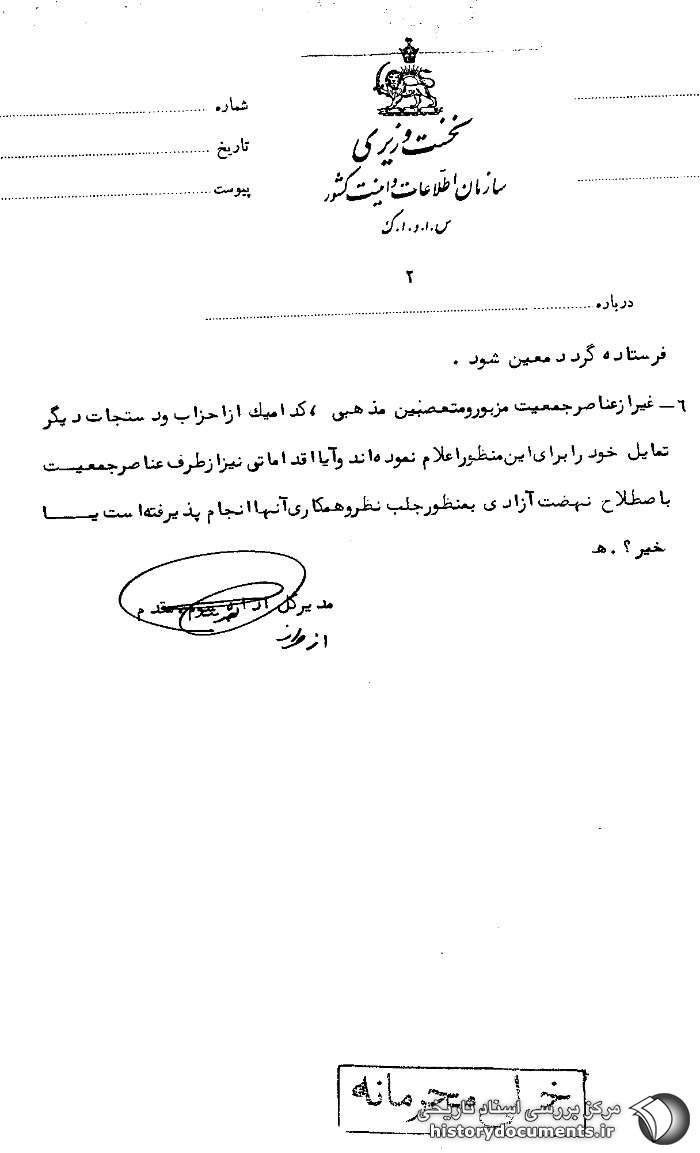 نخست وزیری
سازمان اطلاعات و امنیت کشور
س.ا.و.ا.ک
شماره
تاریخ
پیوست
۲
درباره
فرستاده گردد معین شود .
۶ـ غیر از عناصر جمعیت مزبور و متعصبین مذهبی ، کدامیک از احزاب و دستجات دیگر
تمایل خود را برای این منظور اعلام نموده‌اند و آیا اقداماتی نیز از طرف عناصر جمعیت
باصطلاح نهضت آزادی بمنظور جلب نظر و همکاری آنها انجام پذیرفته است یا
خیر ؟ . هـ
مدیرکل اداره سوم . مقدم
از طرف
خیلی محرمانه
مرکز بررسی اسناد تاریخی
historydocuments.ir